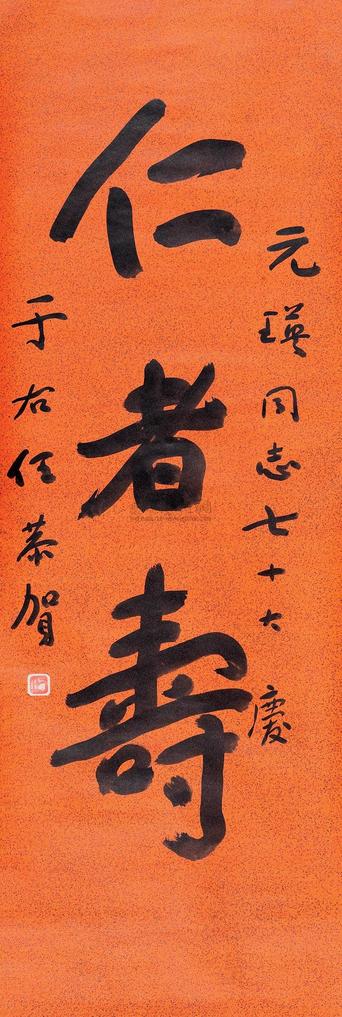 元瑛同志七十大慶
仁者壽
于右任恭賀